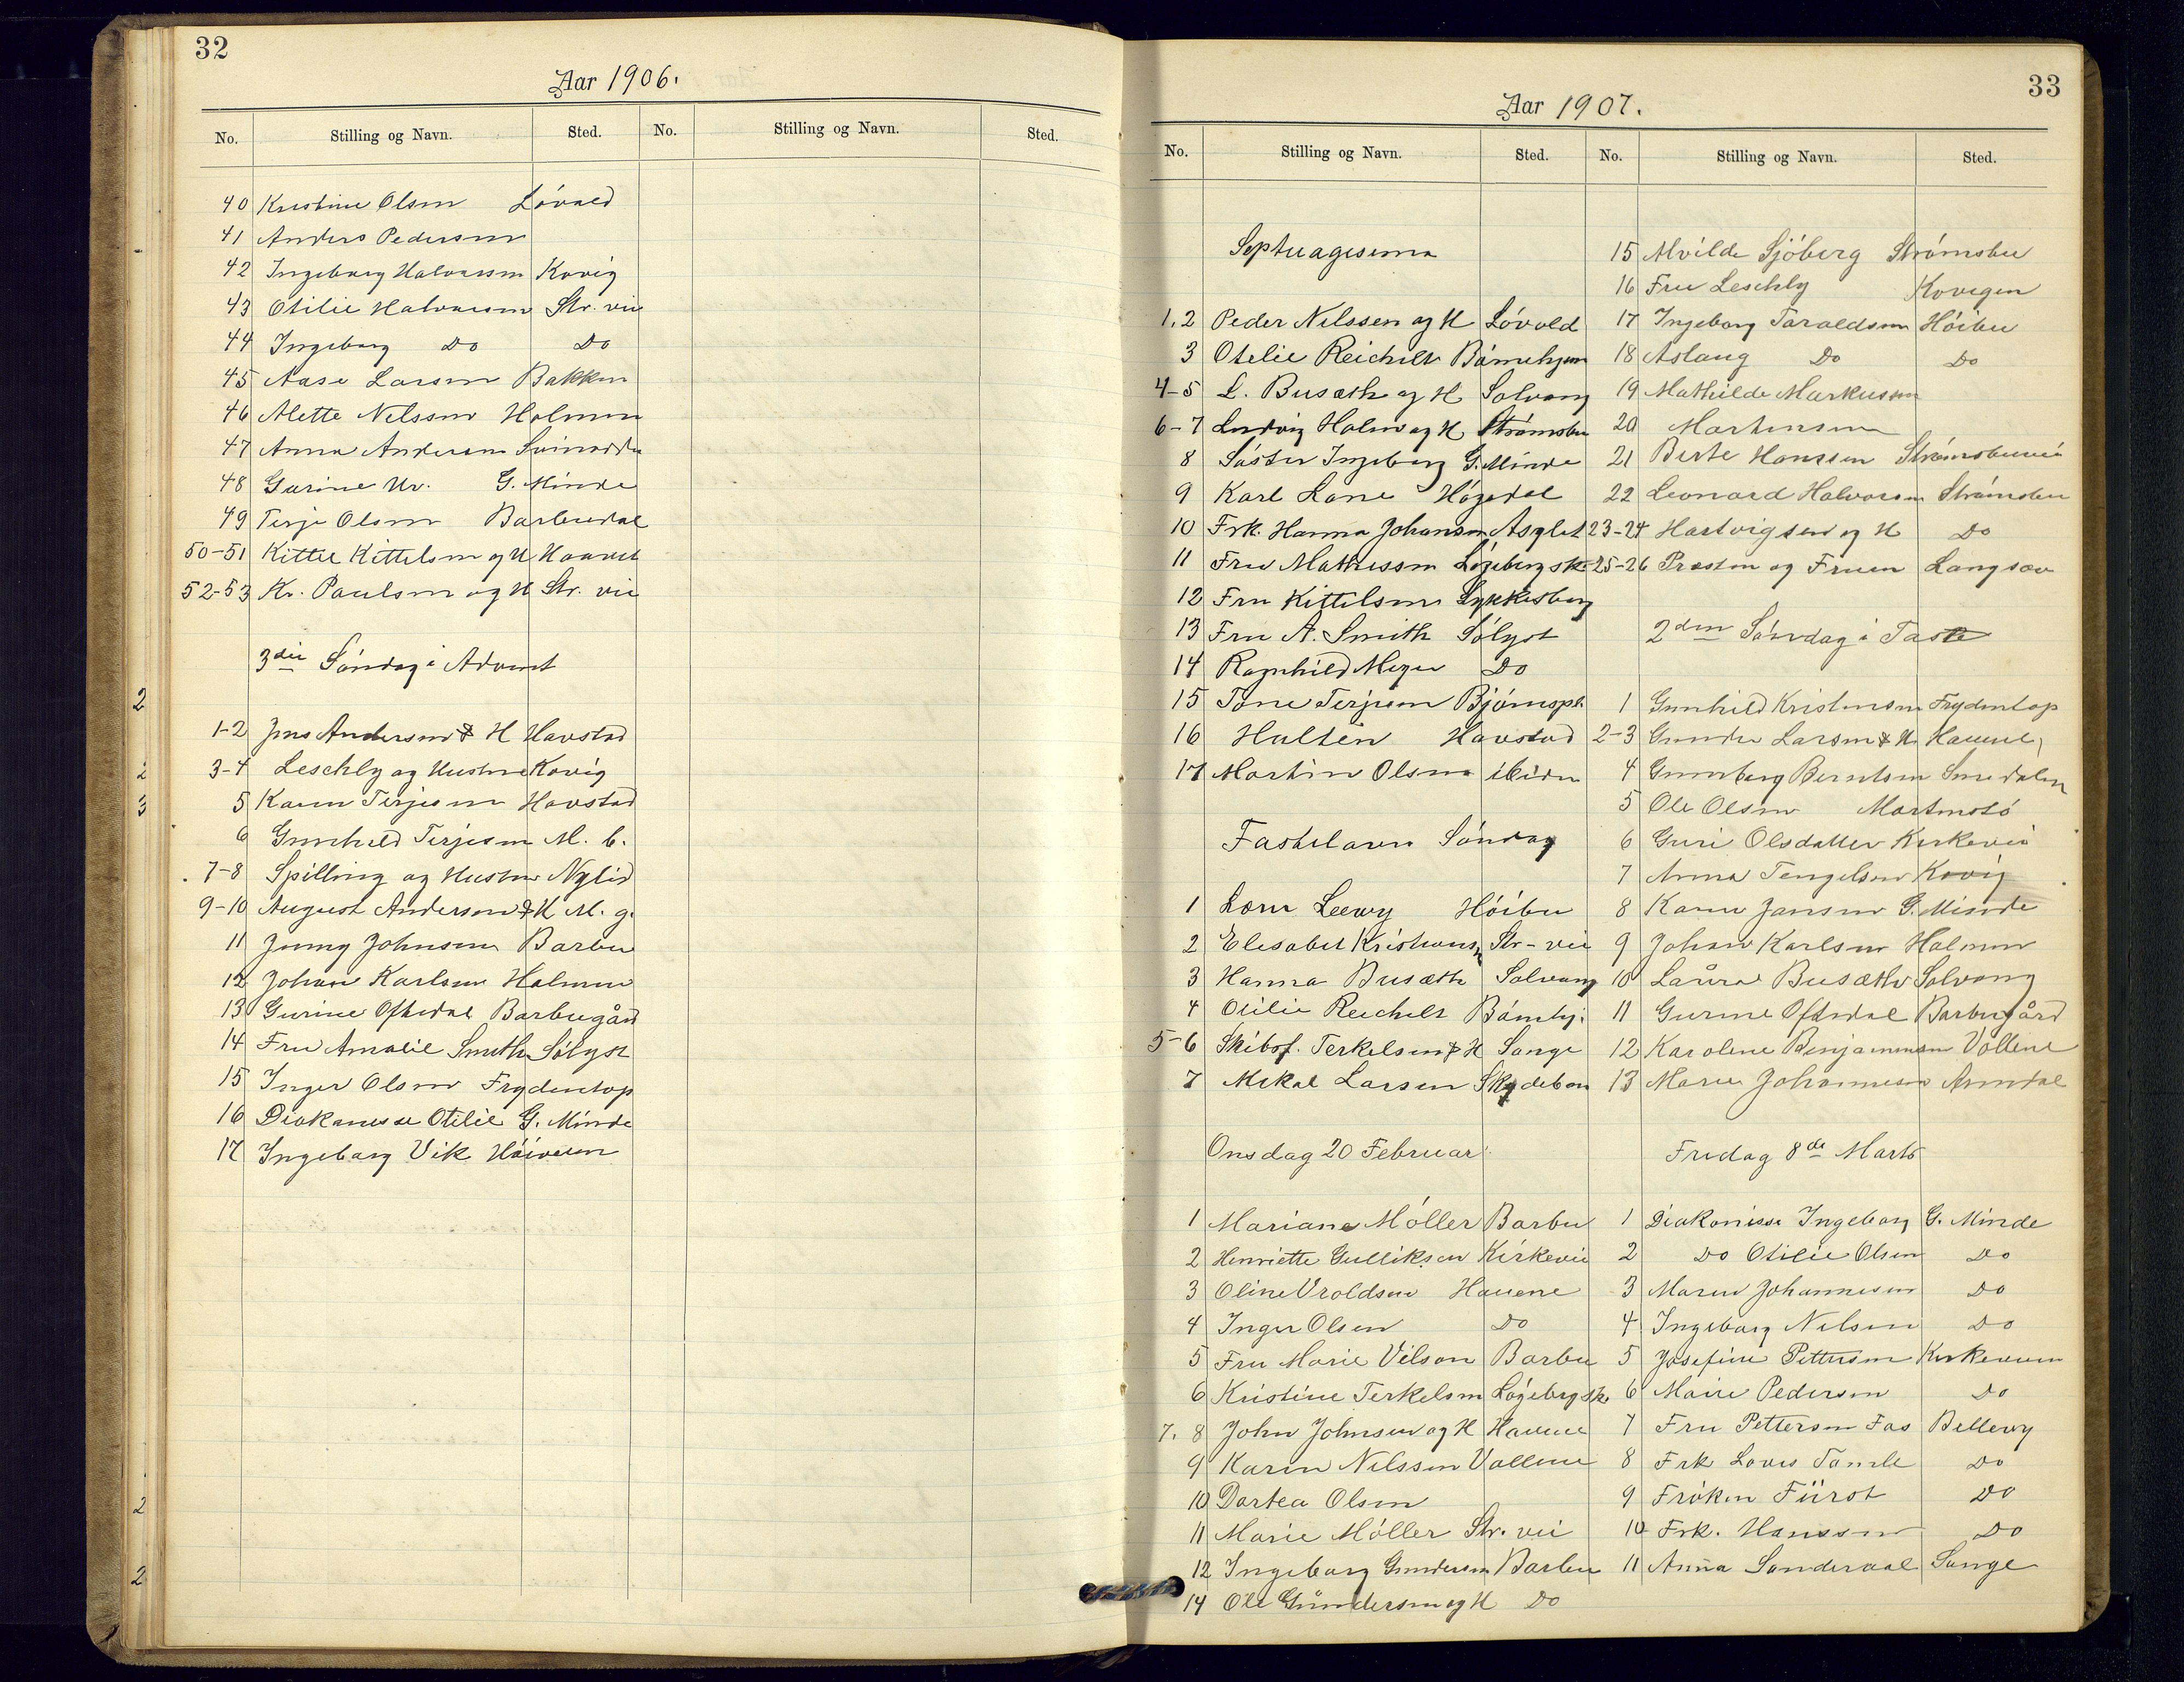 32
Aar 1906.
No. Stilling og Navn. Sted. No. Stilling og Navn. Sted.
40 Kristine Olsen Lóvold
41 Anders Pedersen
42 Ingeborg Halvorsen Kovig
43 Otilie Halvorsen Str. vei
44 Ingeborg Do Do
45 Aase Larsen Bakken
46 Alette Nelssen Holmen
47 Anna Andersen
48 Gurine G. Minde
49 Terje Olsen Barbudal
50-51 Kittel Kittelsen og H
52-53 Kr. Paulsen og H Str. vei
3die Sóndag i Advent
1-2 Jens Andersen & H Havstad
3-4 Leschly og Hustru Kovig
5 Karen Terjesen Havstad
6 Gunhild Terjesen M. b.
7-8 Spilling og Hustru Nylid
9-10 August Andersen & H M. g.
11 Jenny Johnsen Barbu
12 Johan Karlsen Holmen
13 Gurine Oftedal Barbugård
14 Fru Amalie Smith Sólyst
15 Inger Olsen Frydentop
16 Diakonesse Otilie G. Minde
17 Ingeborg Vik Hóiveien
33
Aar 1907.
No. Stilling og Navn. Sted. No. Stilling og Navn. Sted.
Septuagesima
1.2 Peder Nilssen og H Lóvold
3 Otelie Reichelt Bórnehjem
4-5 L. Busæth og H Solvang
6-7 Ludvig Holm og H Strómsbu
8 Sóster Ingeborg G. Minde
9 Karl Lone Hógedal
10 Frk. Hanna Johansen Asylet
11 Fru Mathissen Lógebergsk.
12 Fru Kittelsen Lykkesborg
13 Fru A. Smith Sólyst
14 Ragnhild Meyer Do
15 Tone Terjesen Bjórnspl.
16 Hulten Havstad
17 Martin Olsen ibiden
Fastelavn Sóndag
1 Lorn Leewy Hóibu
2 Elisabet Kristians Str-vei
3 Hanna Busæth Solvang
4 Otilie Reichelt Bórnehj.
5-6 Skibsf. Terkelsen & H Songe
7 Mikal Larsen Skydeban
Onsdag 20 Februar
1 Mariane Móller Barbu
2 Henriette Gulliksen Kirkevei
3 Oline Vroldsen Hauene
4 Inger Olsen Do
5 Fru Marie Vilson Barbu
6 Kristine Terkelsen Lógebergsk.
7. 8 John Johnsen og H Hauene
9 Karen Nilssen Vollene
10 Dortea Olsen
11 Marie Móller Str. vei
12 Ingeborg Gundersen Barbu
14 Ole Gundersen og H Do
15 Alvilde Sjóberg Strómsbu
16 Fru Leschly Kovigen
17 Ingeborg Taraldsen Hóibu
18 Aslaug Do Do
19 Mathilde Markussen
20 Martensen
21 Berte Hanssen Strómsbuvei
22 Leonard Halvorsen Strómsbu
23-24 Hartvigsen og H Do
25-26 Præsten og Fruen Langsæv
2den Sóndag i Faste
1 Gunhild Kristensen Frydentop
2-3 Gunder Larsen & H Hauene
4 Gunnborg Berntsen Smedalen
5 Ole Olsen Martensló
6 Guri Olsdatter Kirkevei
7 Anna Tengelsen Kovig
8 Karen Jansen G. Minde
9 Johan Karlsen Holmen
10 Laura Busæth Solvang
11 Gurine Oftedal Barbugård
12 Karolene Benjaminsen Vollene
13 Maren Johannesen Arendal
Fredag 8de Marts
1 Diakonisse Ingeborg G. Minde
2 Do Otilie Olsen Do
3 Maren Johannesen Do
4 Ingeborg Nelsen Do
5 Josefine Pettersen Kirkeveien
6 Marie Pedersen Do
7 Fru Pettersen Fas Bellevy
8 Frk Do
9 Fróken Fürst Do
10 Frk. Hanssen Do
11 Anna Sanderaal Songe